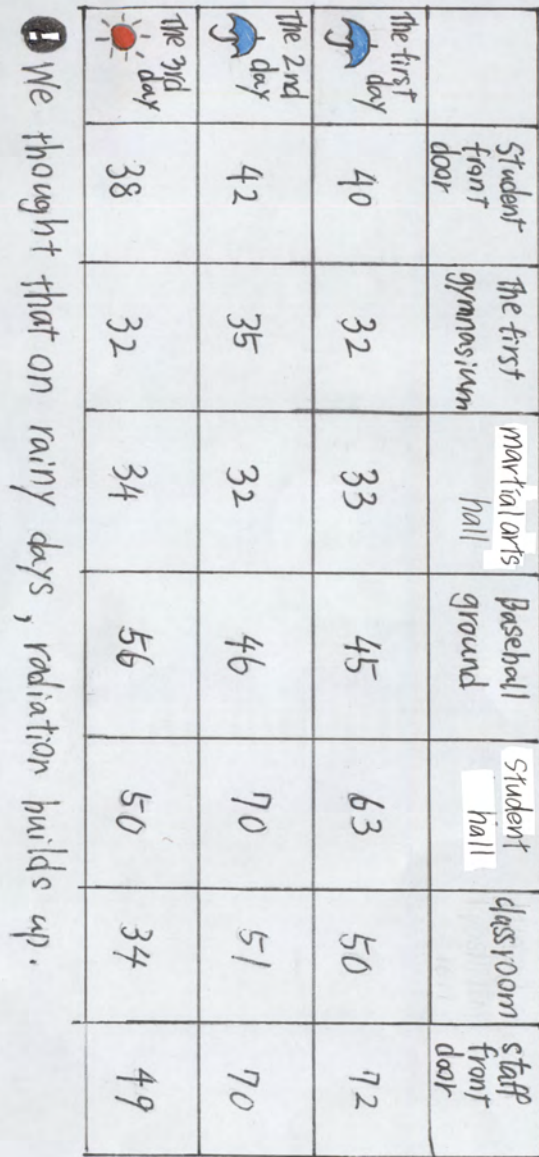 student front door The first gymnasium martial arts hall Baseball ground student hall classroom staff front door
The first day 40 32 33 45 63 50 72
The 2nd day 42 35 32 46 70 51 70
The 3rd day 38 32 34 56 50 34 49
! We thought that on rainy days, radiation builds up.